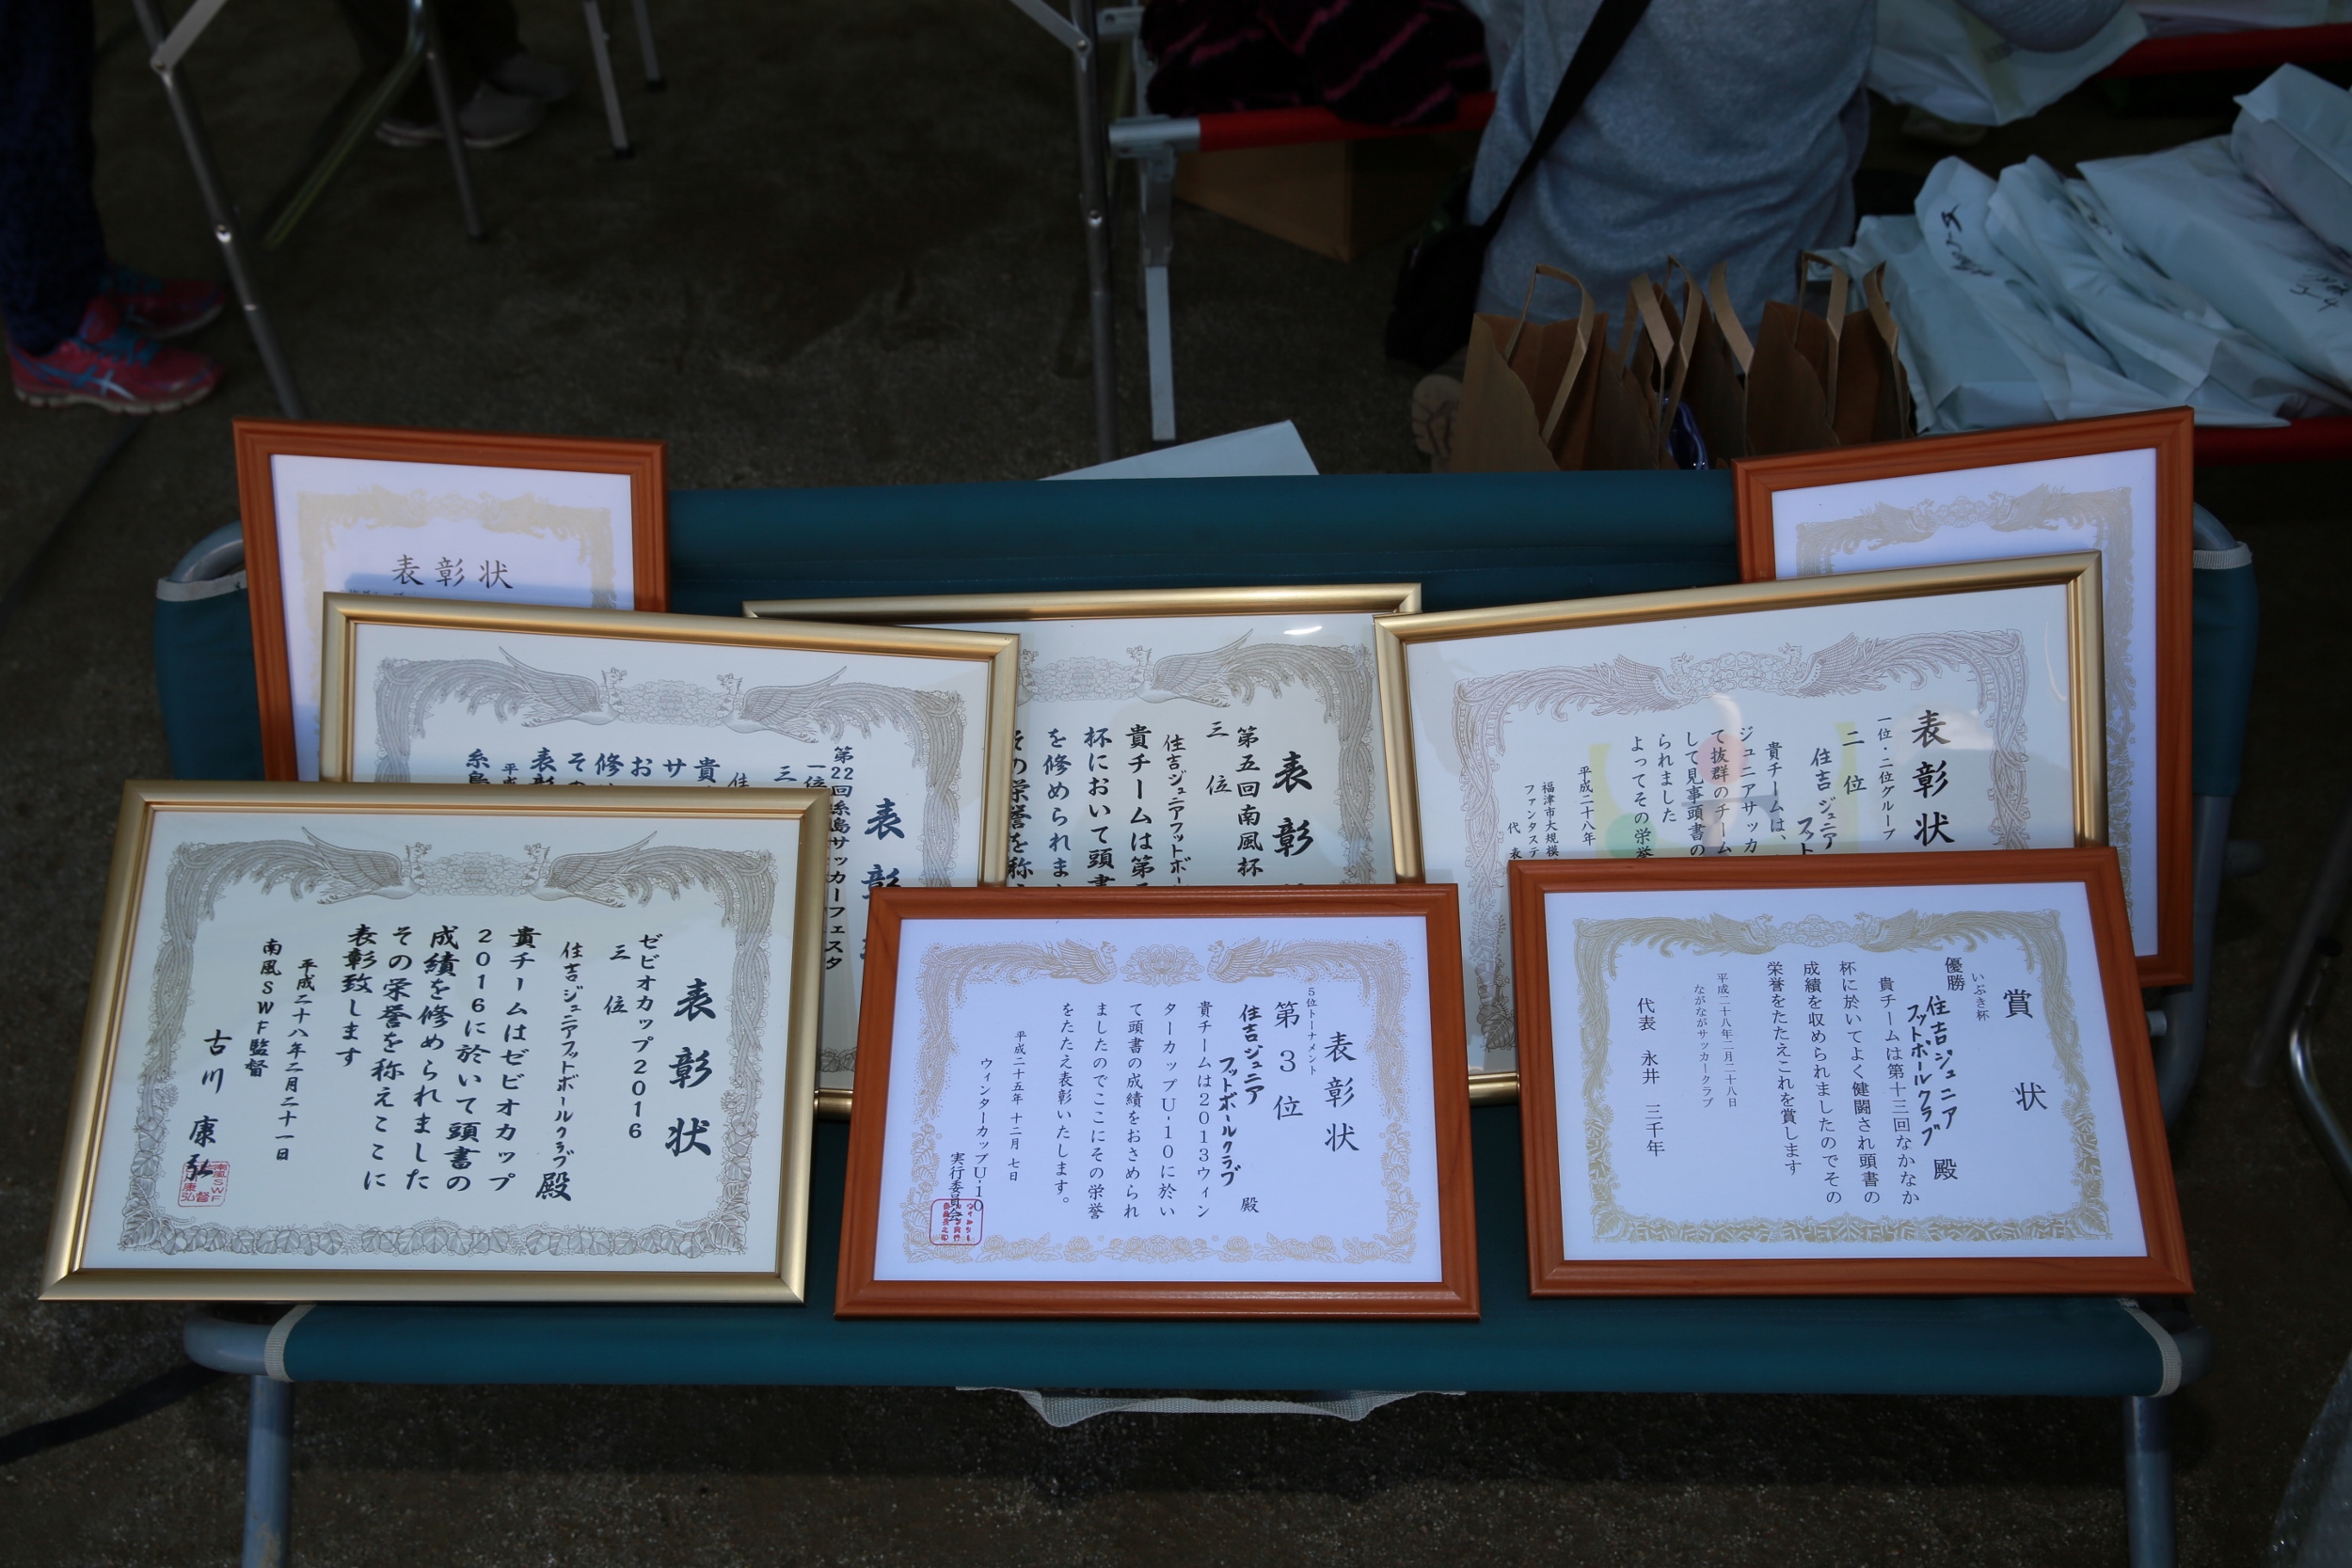 表彰状
表彰
第22回糸島サッカーフェスタ
一位
三
貴
サ
お
修
その
表彰
平成
糸島
表彰
第五回南風杯
三位
住吉ジュニアフットボー
貴チームは第
杯において頭書
を修められま
その栄誉を称
表彰状
一位・二位グループ
二位
住吉ジュニア
フット
貴チームは、
ジュニアサッカ
て抜群のチーム
して見事頭書の
られました
よってその栄誉
平成二十八年
福津市大規模
ファンタステ
代表
表彰状
ゼビオカップ2016
三位
住吉ジュニアフットボールクラブ殿
貴チームはゼビオカップ
2016に於いて頭書の
成績を修められました
その栄誉を称えここに
表彰致します
平成二十八年二月二十一日
南風SWF監督
古川康弘
表彰状
5位トーナメント
第3位
住吉ジュニア
フットボールクラブ 殿
貴チームは2013ウィン
ターカップU-10に於い
て頭書の成績をおさめられ
ましたのでここにその栄誉
をたたえ表彰いたします。
平成二十五年 十二月 七日
ウィンターカップU-10
実行委員会
賞状
いぶき杯
優勝
住吉ジュニア
フットボールクラブ 殿
貴チームは第十三回なかなか
杯に於いてよく健闘され頭書の
成績を収められましたのでその
栄誉をたたえこれを賞します
平成二十八年二月二十八日
ながながサッカークラブ
代表 永井 三千年